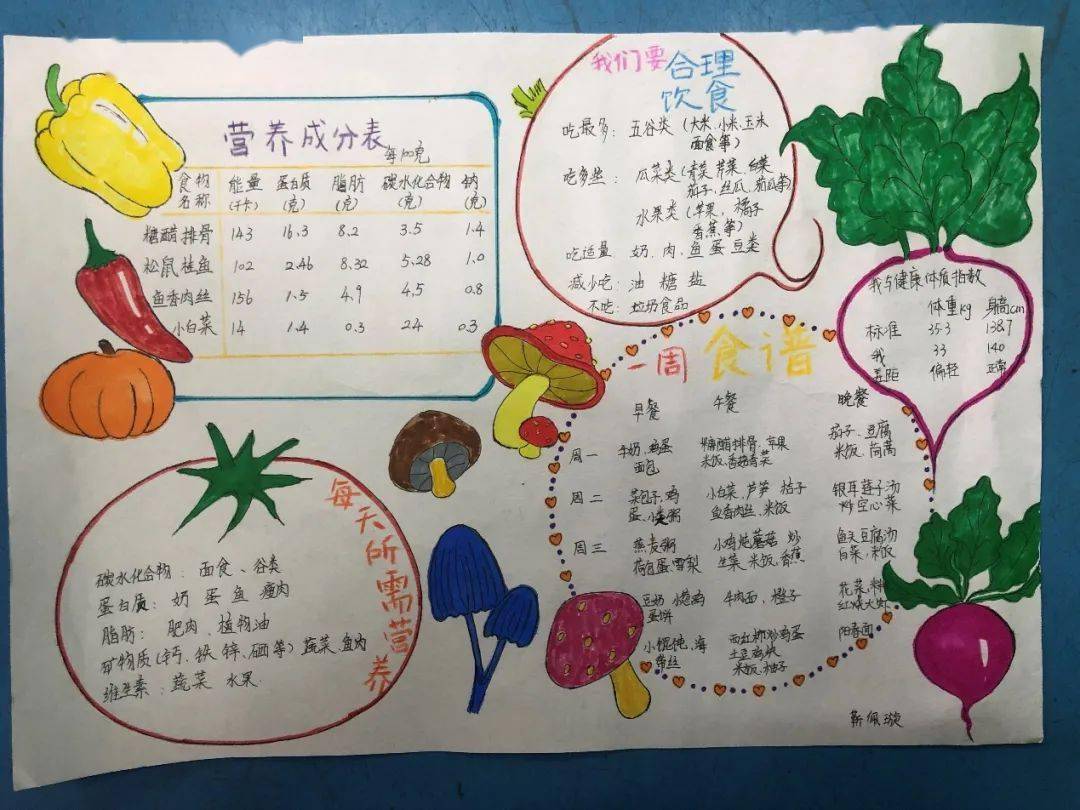 营养成分表
每100克
食物名称 能量(千卡) 蛋白质(克) 脂肪(克) 碳水化合物(克) 钠(克)
糖醋排骨 143 16.3 8.2 3.5 1.4
松鼠桂鱼 102 2.46 8.32 5.28 1.0
鱼香肉丝 156 1.5 4.9 4.5 0.8
小白菜 14 1.4 0.3 24 0.3
我们要合理
饮食
吃最多: 五谷类(大米、小米、玉米
面食等)
吃多些: 瓜菜类(青菜 芹菜 白菜
茄子、丝瓜、茄瓜等)
水果类(苹果, 橘子
香蕉等)
吃适量 奶、肉、鱼 蛋 豆类
减少吃: 油 糖 盐
不吃: 垃圾食品
我与健康体质指数
体重kg 身高cm
标准 35.3 138.7
我 33 140
差距 偏轻 正常
一周食谱
早餐 午餐 晚餐
周一 牛奶、鸡蛋 糖醋排骨、苹果 茄子、豆腐
面包 米饭、香菇青菜 米饭、茼蒿
周二 菜包子、鸡 小白菜、芦笋 桔子 银耳莲子汤
蛋、小米粥 鱼香肉丝、米饭 炒空心菜
周三 燕麦粥 小鸡炖蘑菇 炒 鱼头豆腐汤
荷包蛋、雪梨 生菜、米饭、香蕉 白菜、米饭
豆奶 牛肉面、橙子 花菜、料
蛋饼 红烧大虾
小馄饨、海 西红柿炒鸡蛋 阳春面
带丝
米饭、柚子
每天所需营养
碳水化合物: 面食、谷类
蛋白质: 奶 蛋 鱼 瘦肉
脂肪: 肥肉、植物油
矿物质(钙、铁 锌、硒等) 蔬菜、鱼肉
维生素: 蔬菜 水果
靳佩璇